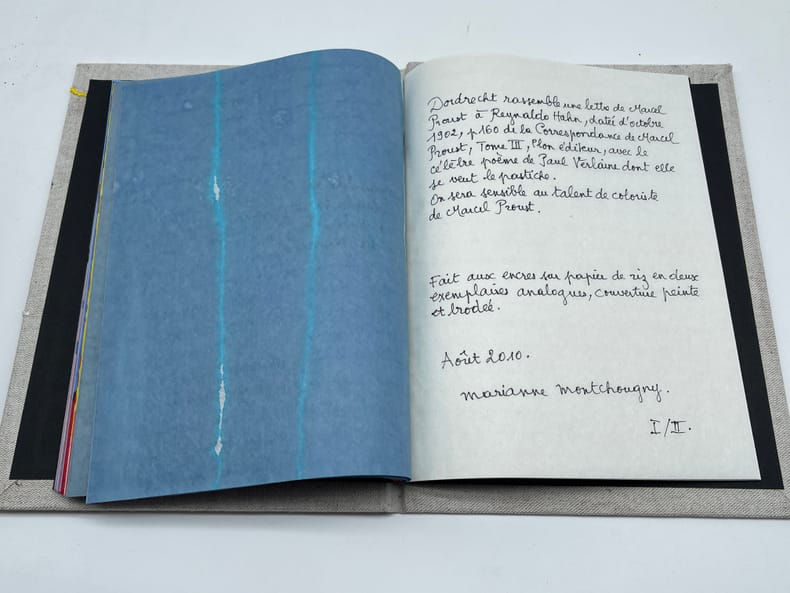 Dordrecht rassemble une lettre de Marcel
Proust à Reynaldo Hahn, datée d'octobre
1902, p 160 di la Correspondance de Marcel
Proust, Tome III, Plon éditeur, avec le
célèbre poème de Paul Verlaine dont elle
se veut le pastiche.
On sera sensible au talent de coloriste
de Marcel Proust.
Fait aux encres sur papier de riz en deux
exemplaires analogues, couverture peinte
et brodée.
Août 2010.
Marianne Montchougny.
I/II.